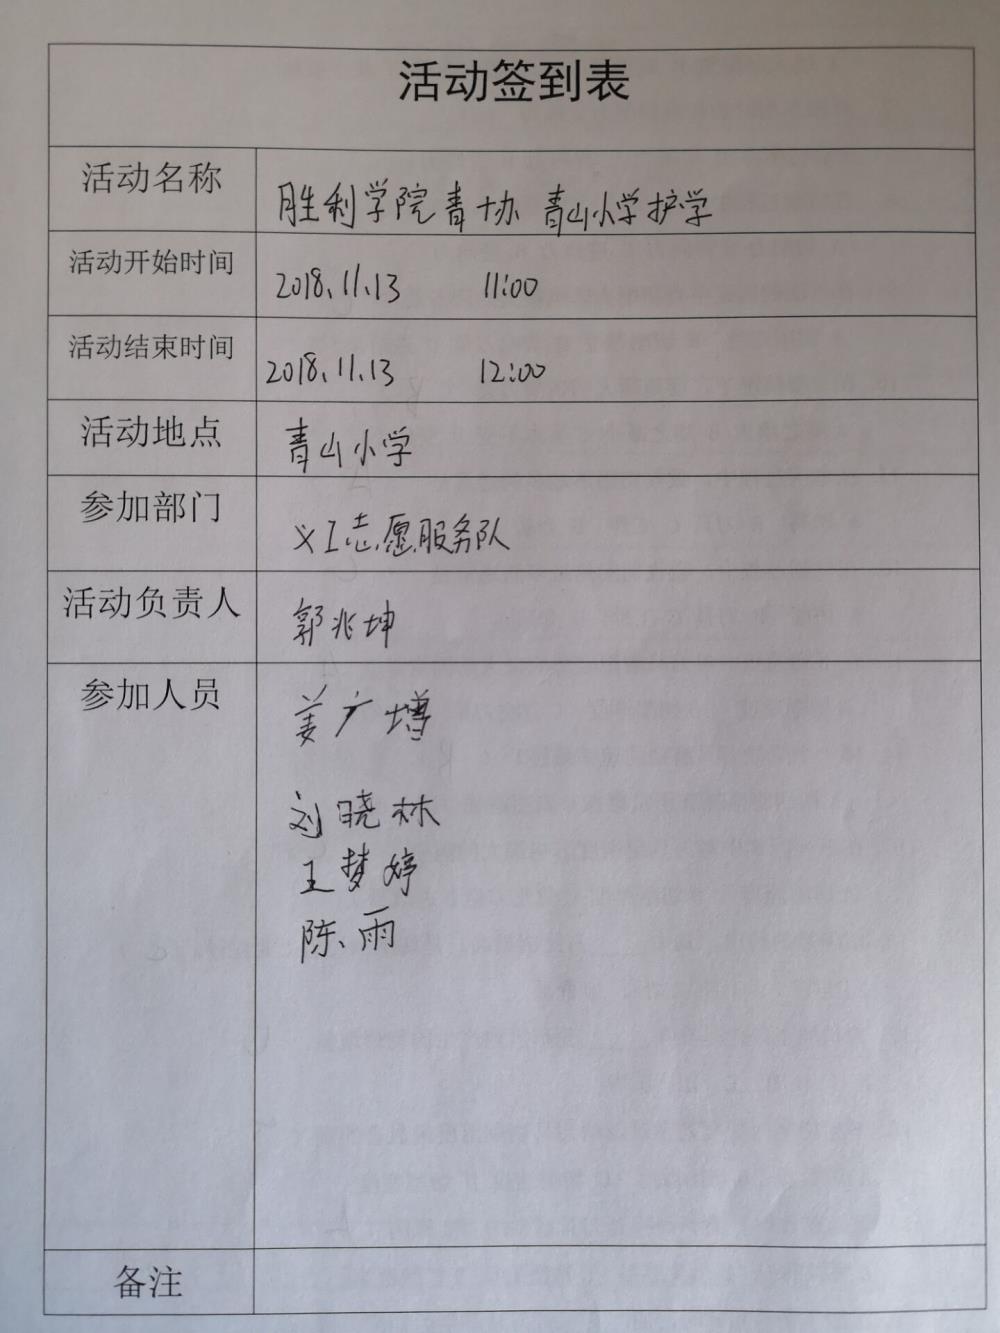 活动签到表
活动名称
胜利学院青协 青山小学护学
活动开始时间
2018.11.13 11:00
活动结束时间
2018.11.13 12:00
活动地点
青山小学
参加部门
义工志愿服务队
活动负责人
郭兆坤
参加人员
姜广增
刘晓林
王梦婷
陈雨
备注